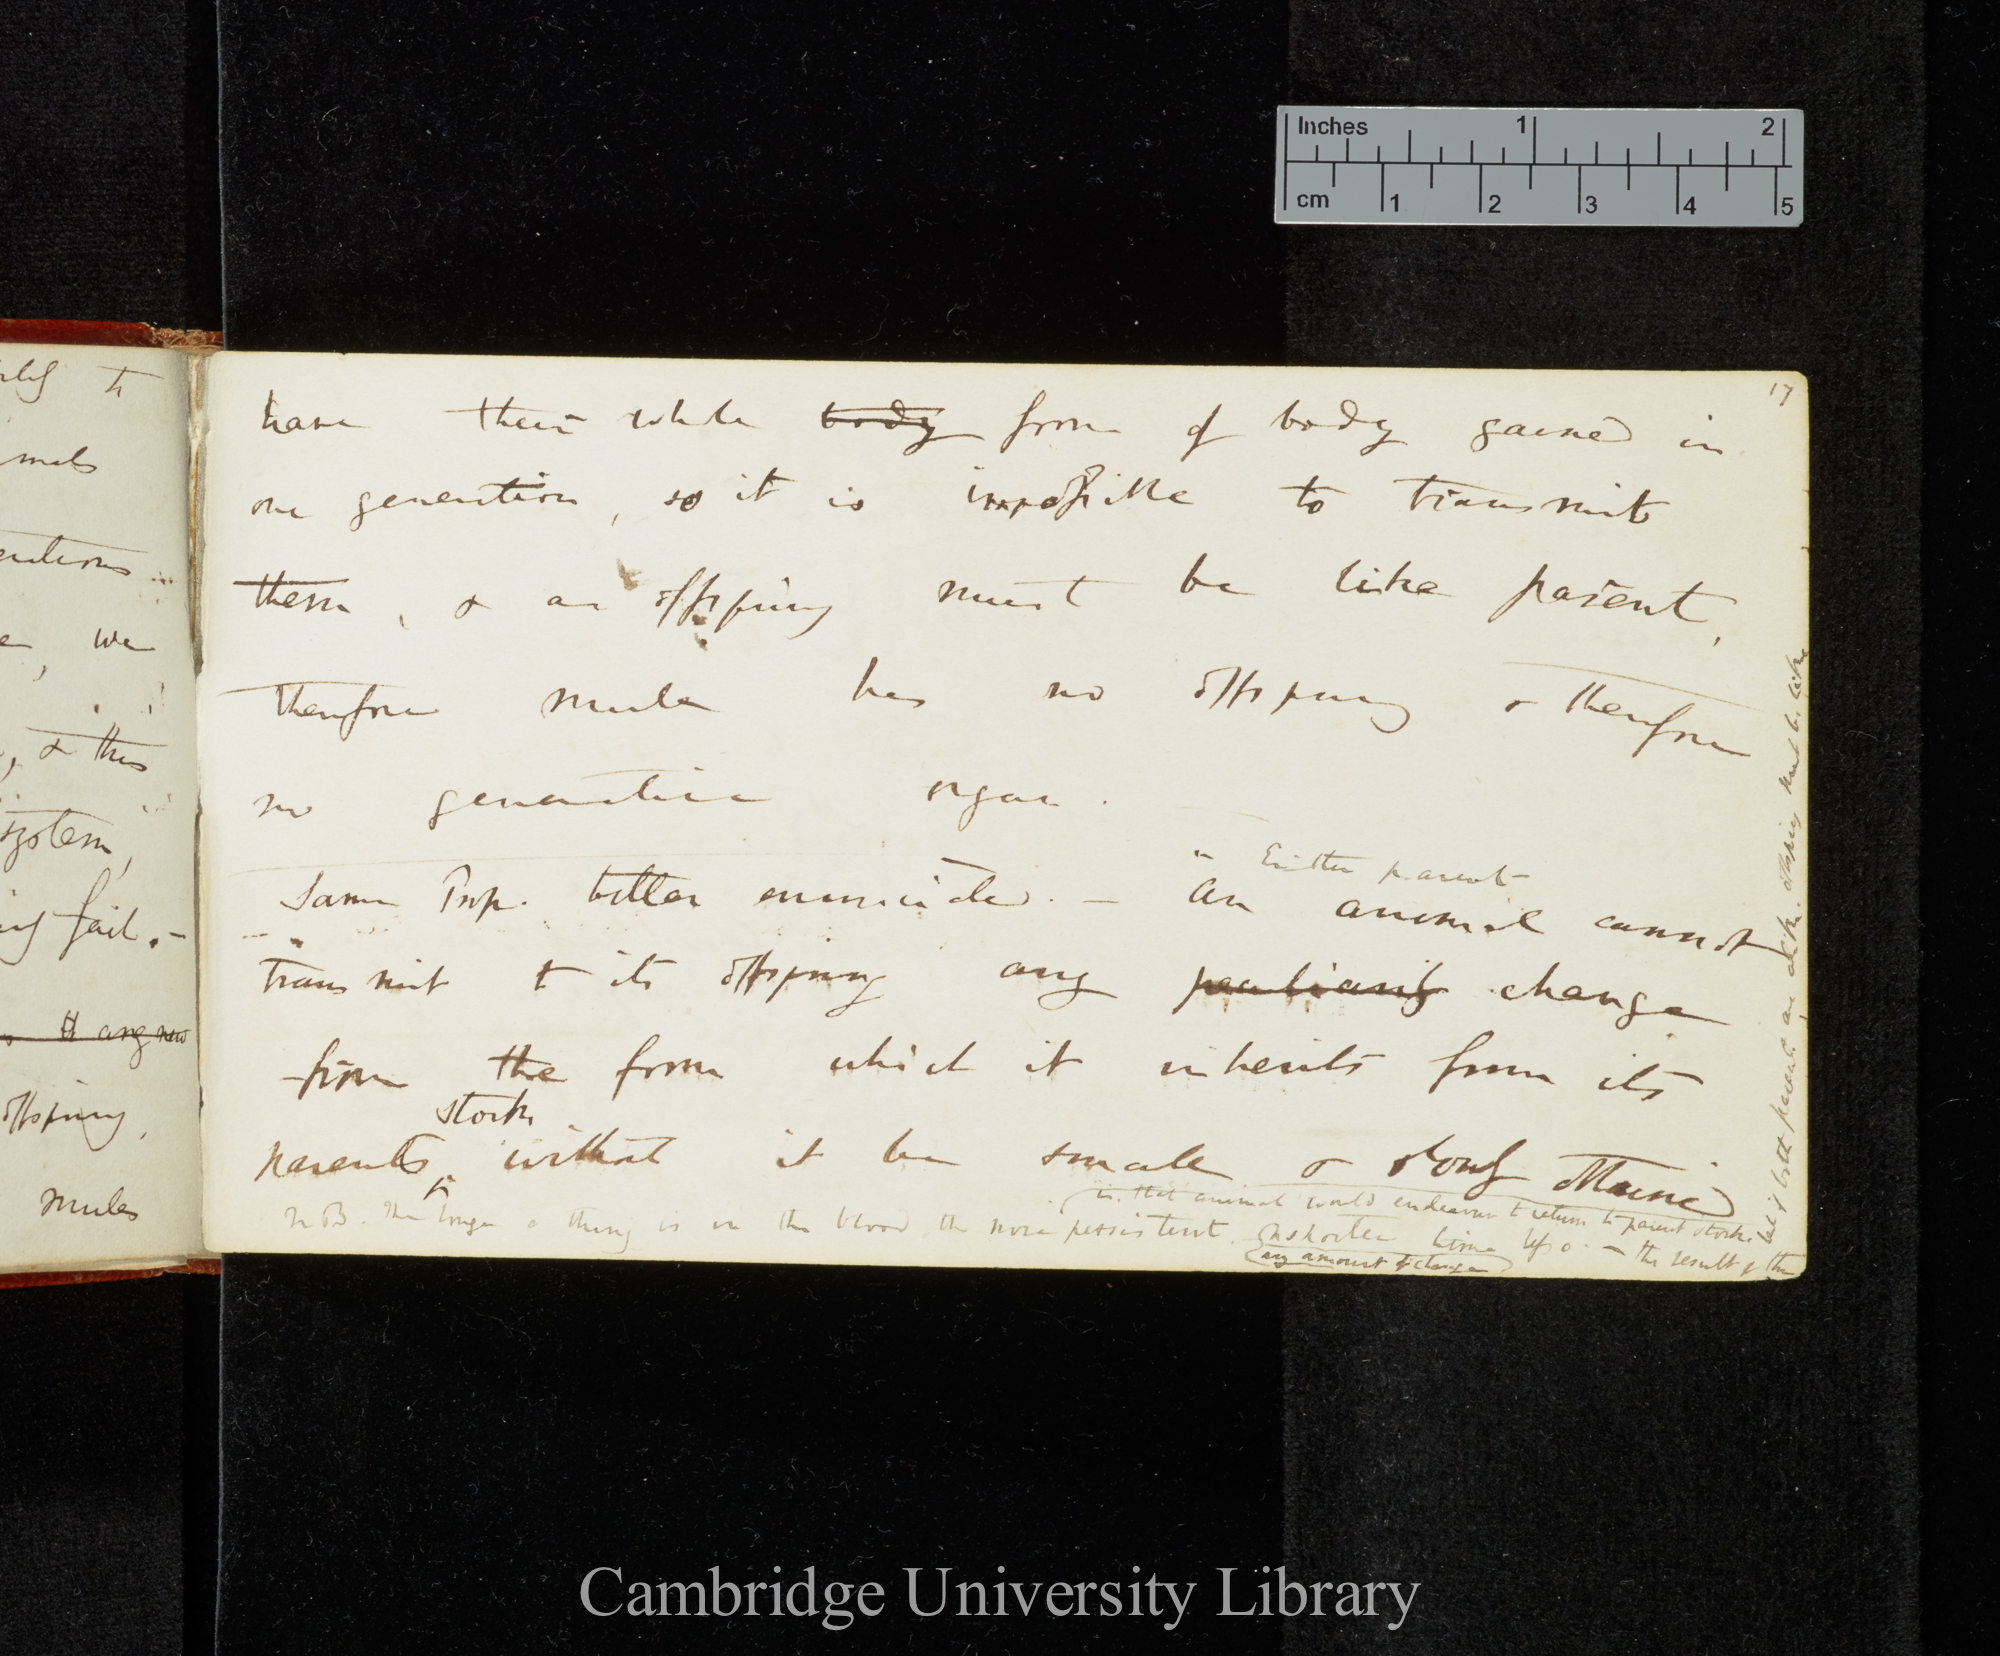 Inches 1 2
cm 1 2 3 4 5
17
have their whole body form of body gained in
one generation, so it is impossible to transmit
them, & as offspring must be like parent,
therefore mule has no offspring & therefore
no generative organ.
Same Prop. better enunciated. —
Either parent
An animal cannot
transmit to its offspring any peculiarity change
from the form which it inherits from its
stock
parents without it be small & slowly attained
ie. that animal would endeavour to return to parent stock.
N.B. The longer a thing is in the blood, the more persistent,
in shorter time less so. — the result of this
any amount of change
that if both parents are alike, offspring must be like
to
mals
, we
, & this
system,
fail. —
any new
offspring,
mules
Cambridge University Library